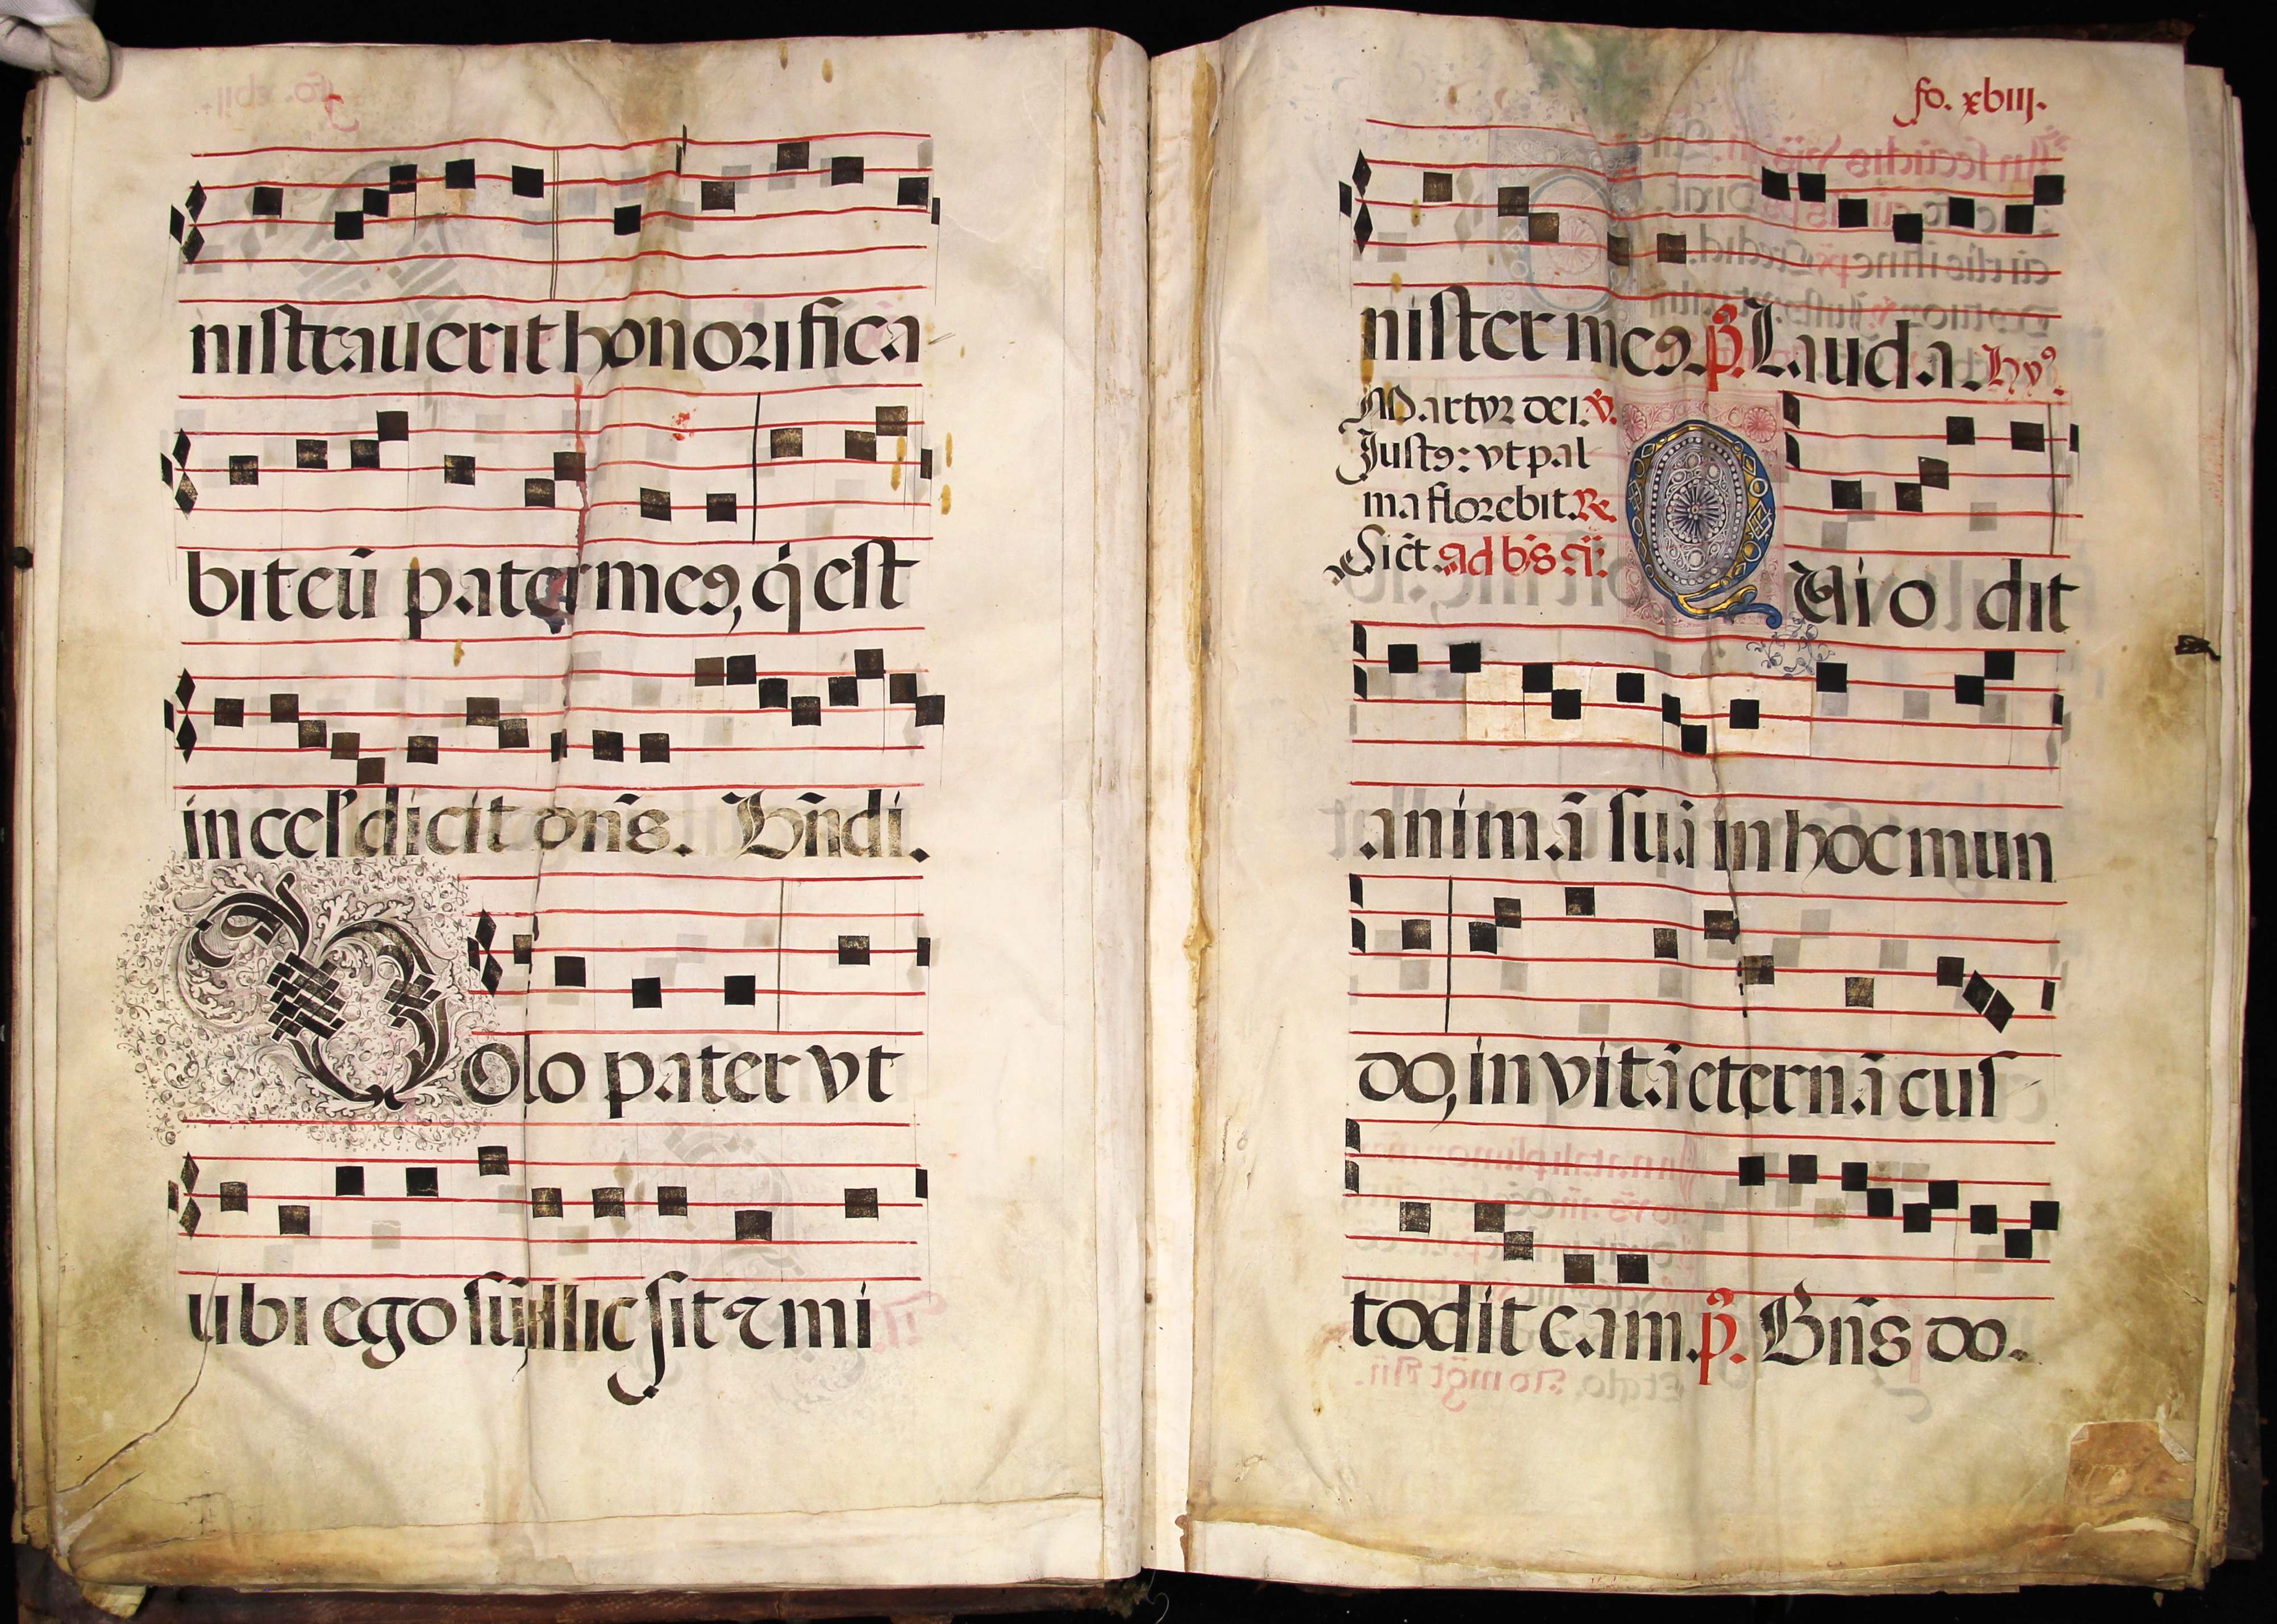 nistrauerit honorifica
bit eū pater meꝯ, q̇ est
in cel' dicit dn̄s. Bn̄di.
Uolo pater vt
ubi ego sū illic sit ꝛ mi
fo. xbiij.
nister meꝯ. p̄. Lauda. Hyꝰ.
Martyr dei. v̄.
Justꝯ: vt pal
ma florebit. Re.
Sic̄t. ad bn̄s añ.
Qui odit
animā suā in hoc mun
do, in vitā eternā cus
todit eam. p̄. Bn̄s do.